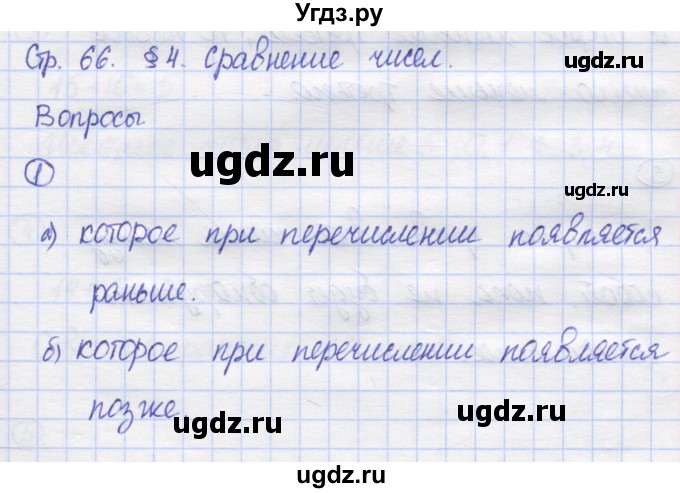 Угдз.ру
Стр. 66. §4. Сравнение чисел.
ugdz.ru
Вопросы
ugdz.ru
1
а) которое при перечислении появляется
ugdz.ru
раньше.
б) которое при перечислении появляется
позже.
ugdz.ru
ugdz.ru
ugdz.ru